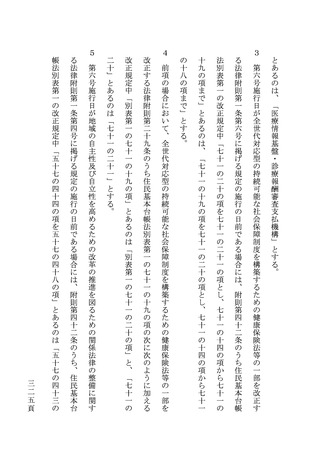 とあるのは、「医療情報基盤・診療報酬審査支払機構」とする。
３　第六号施行日が全世代対応型の持続可能な社会保障制度を構築するための健康保険法等の一部を改正す
る法律附則第一条第六号に掲げる規定の施行の日前である場合には、附則第四十二条のうち住民基本台帳
法別表第一の改正規定中「七十一の二十の項を七十一の二十一の項とし、七十一の十四の項から七十一の
十九の項まで」とあるのは、「七十一の十九の項を七十一の二十の項とし、七十一の十四の項から七十一
の十八の項まで」とする。
４　前項の場合において、全世代対応型の持続可能な社会保障制度を構築するための健康保険法等の一部を
改正する法律附則第二十九条のうち住民基本台帳法別表第一の七十一の十九の項の次に次のように加える
改正規定中「別表第一の七十一の十九の項」とあるのは「別表第一の七十一の二十の項」と、「七十一の
二十」とあるのは「七十一の二十一」とする。
５　第六号施行日が地域の自主性及び自立性を高めるための改革の推進を図るための関係法律の整備に関す
る法律附則第一条第四号に掲げる規定の施行の日前である場合には、附則第四十二条のうち、住民基本台
帳法別表第一の改正規定中「五十七の四十四の項を五十七の四十八の項」とあるのは「五十七の四十三の
三二五頁